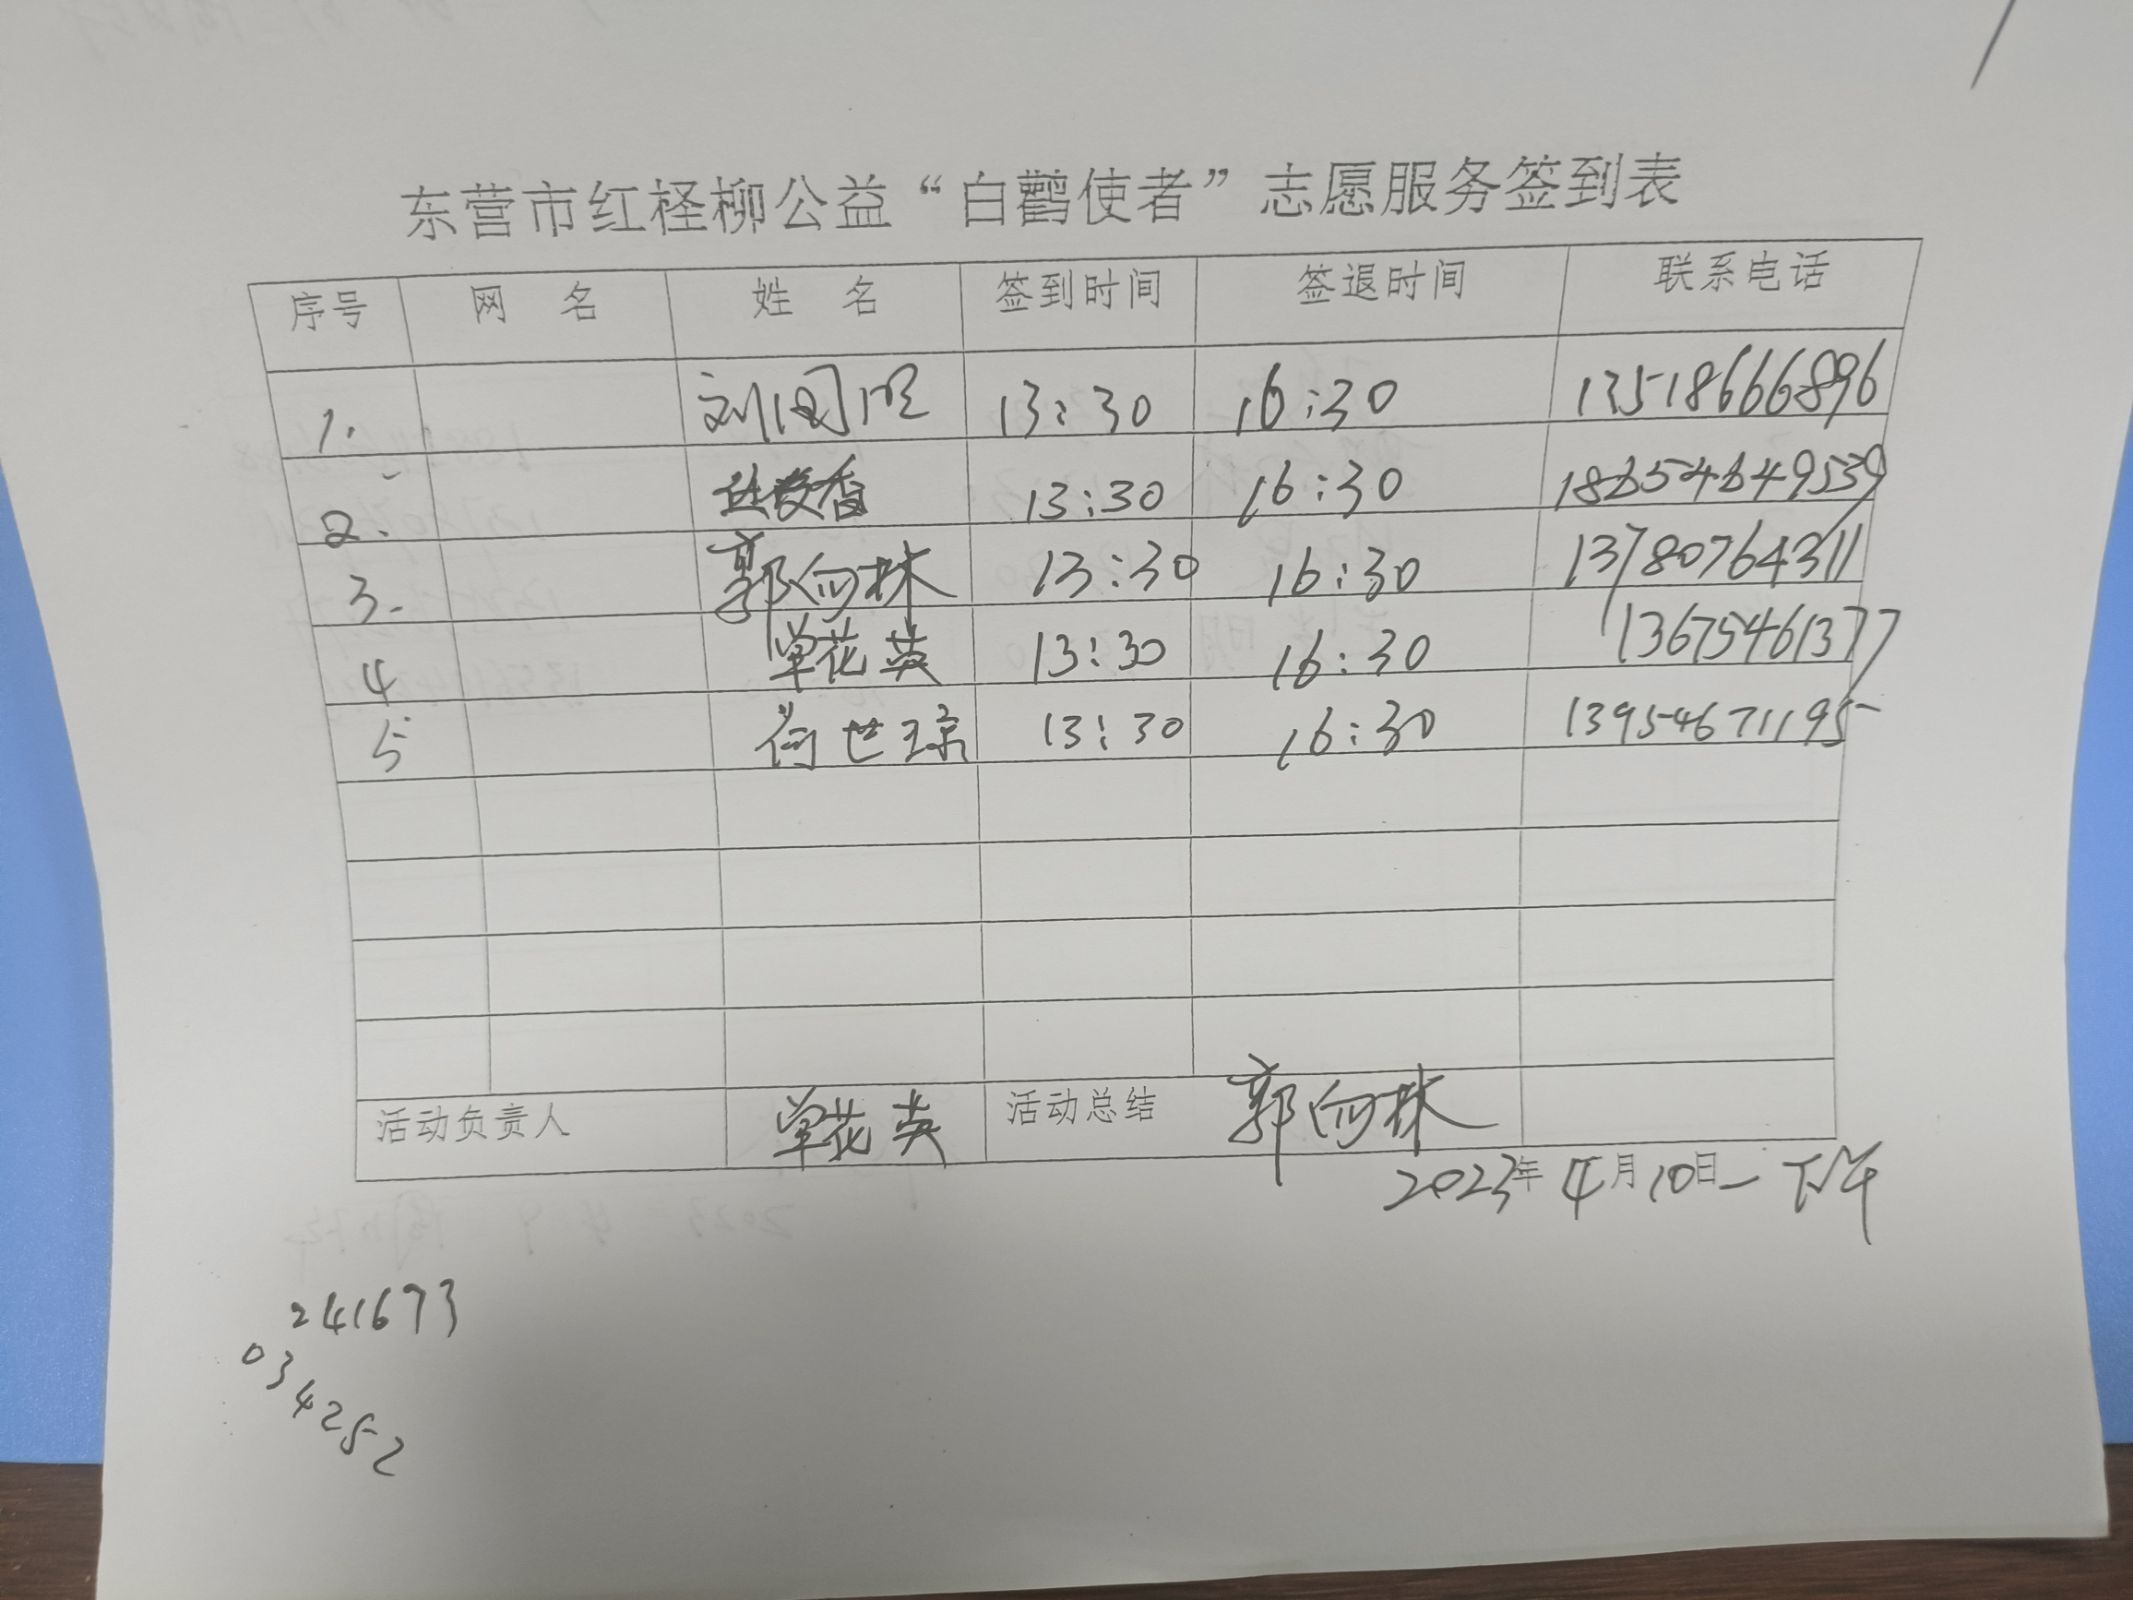 东营市红柽柳公益“白鹳使者”志愿服务签到表
序号 网 名 姓 名 签到时间 签退时间 联系电话
1. 刘国旺 13:30 16:30 13518666896
2. 香 13:30 16:30 18654649559
3. 郭向林 13:30 16:30 13780764311
4 单花英 13:30 16:30 13675461377
5 苟世琼 13:30 16:30 13954671195
活动负责人 单花英 活动总结 郭向林
2023年4月10日一下午
241673
034252